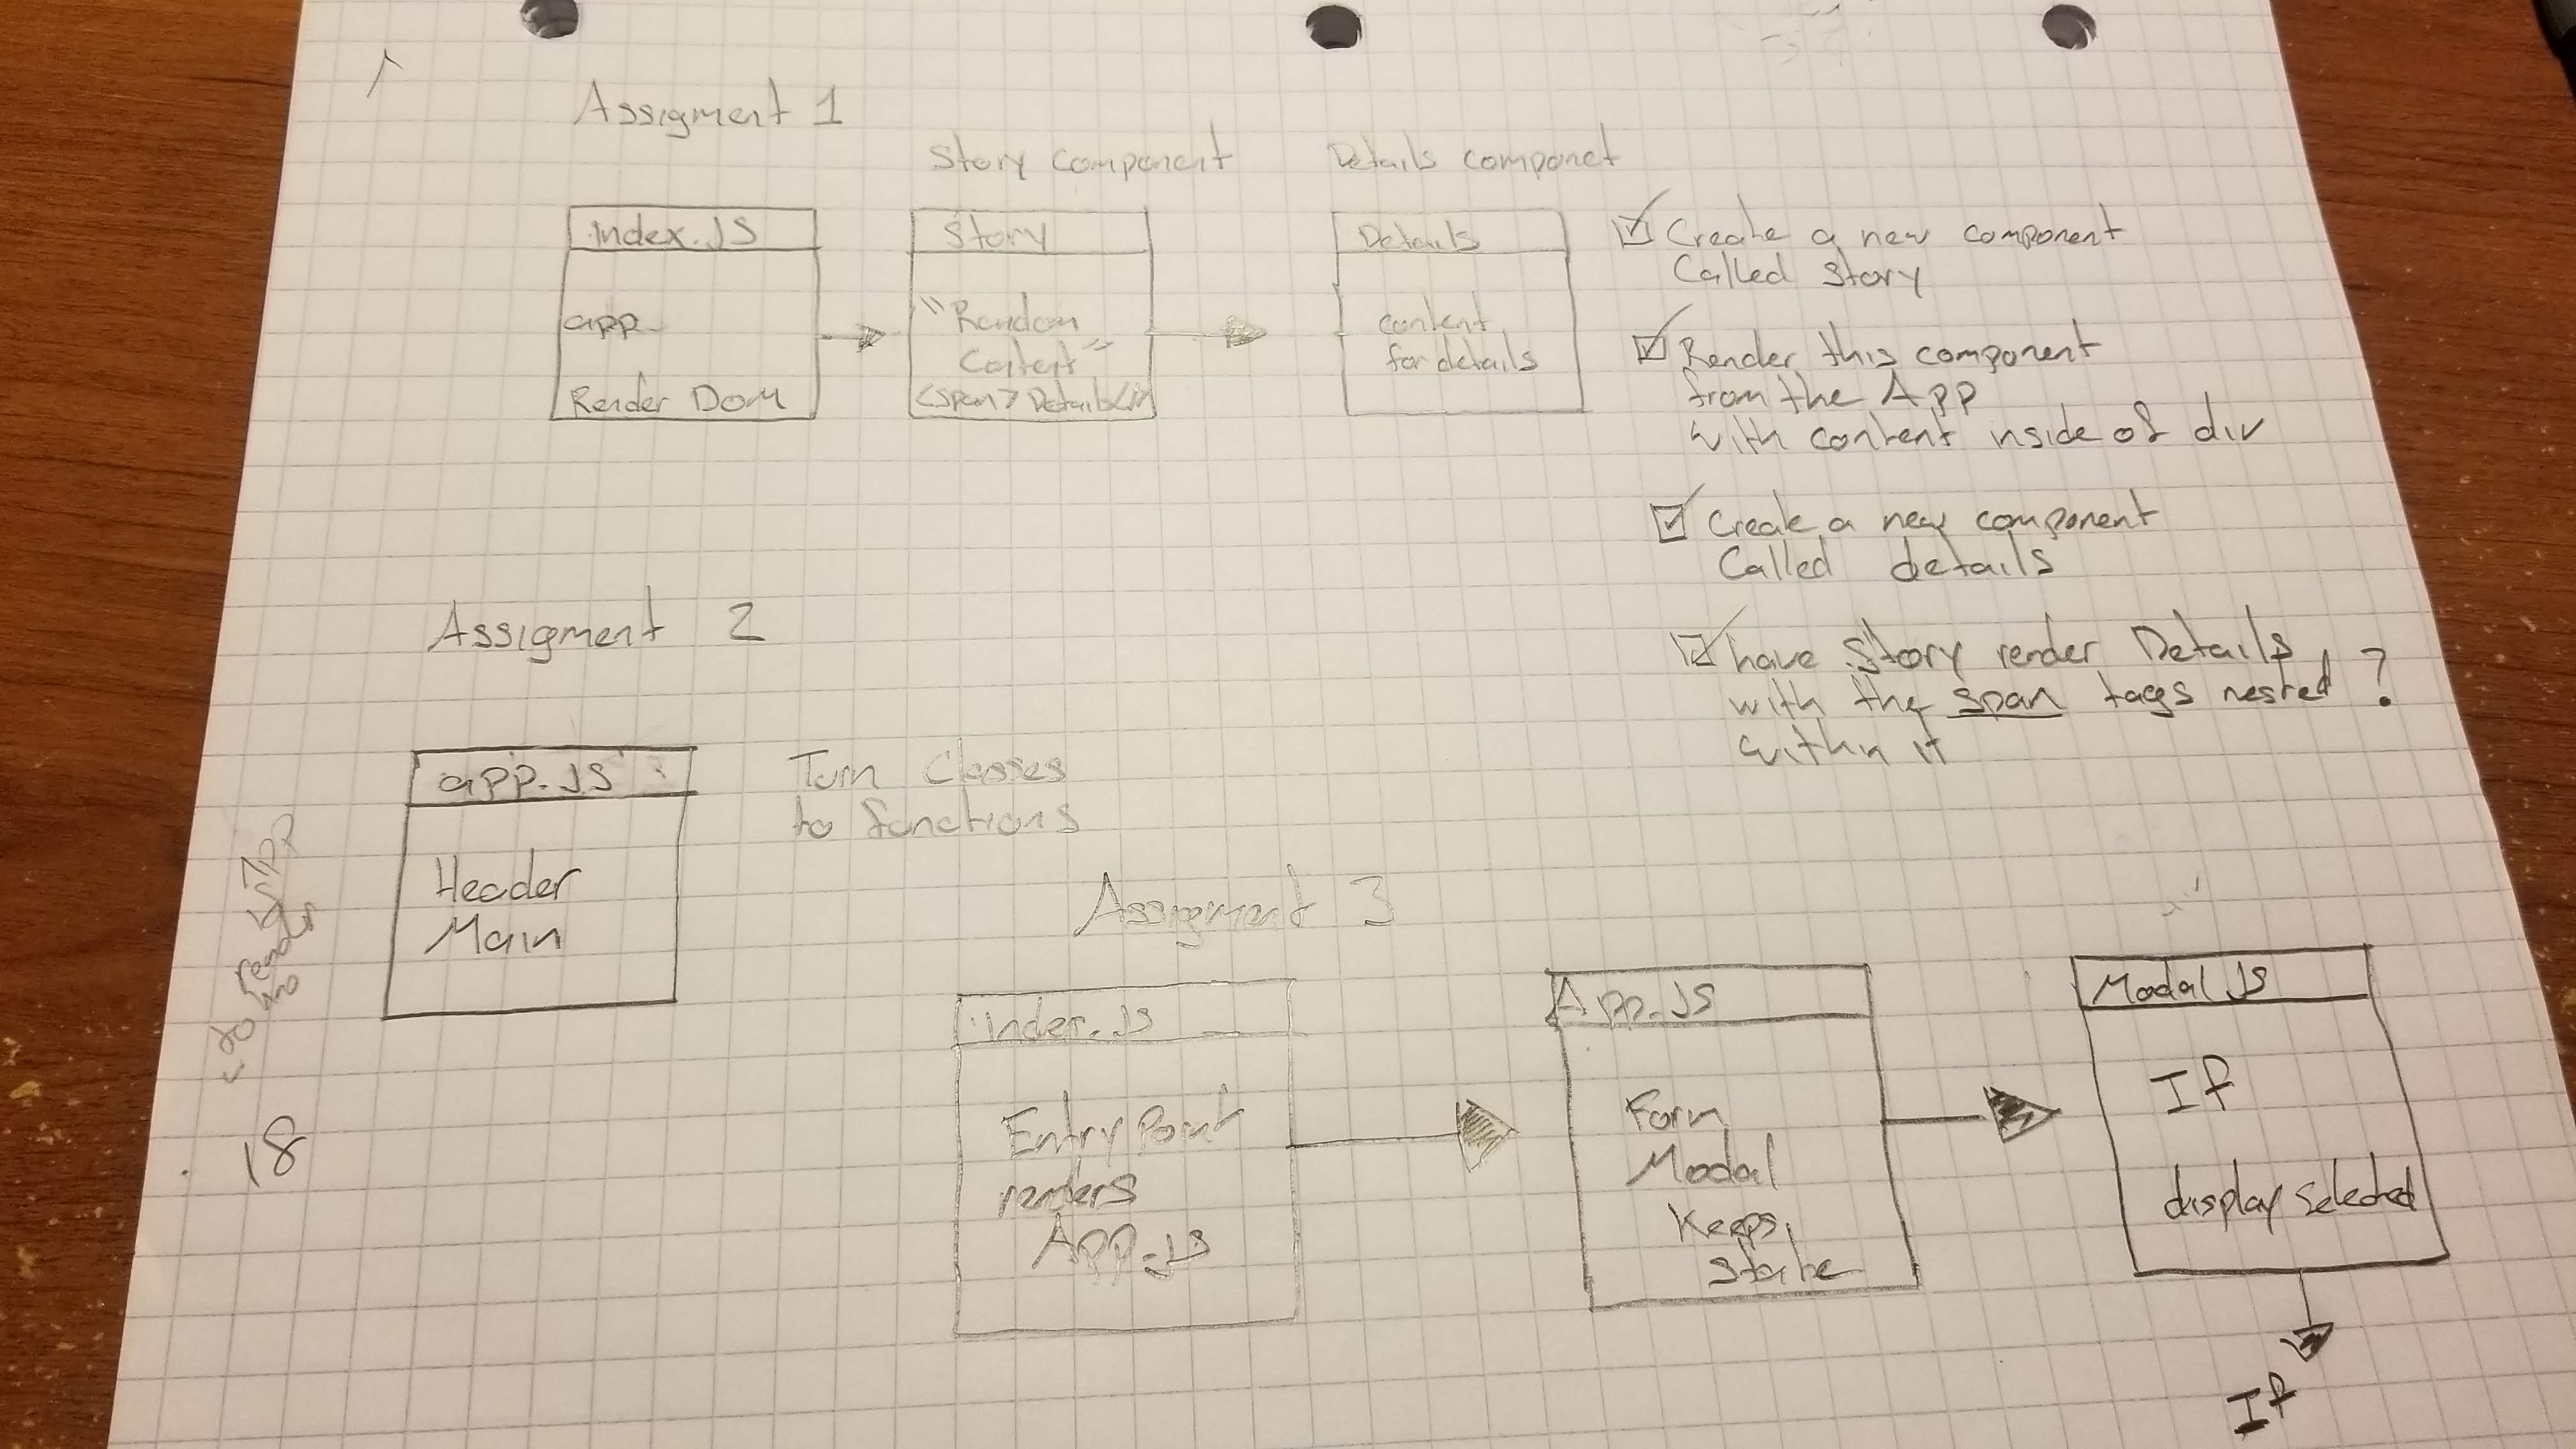 Assigment 1
Story component
Details componet
Index.JS
app
Render Dom
Story
"Random
Content"
<span> Details</
Details
content
for details
Create a new component
Called Story
Render this component
from the App
with content inside of div
Create a new component
Called details
have Story render Details
with the span tags nested ?
within it
Assigment 2
app.JS
Header
Main
Turn Classes
to functions
render
18
Assigment 3
Index.JS
Entry Point
renders
App.js
App.JS
Form
Modal
Keeps
State
Modal JS
If
display selected
If